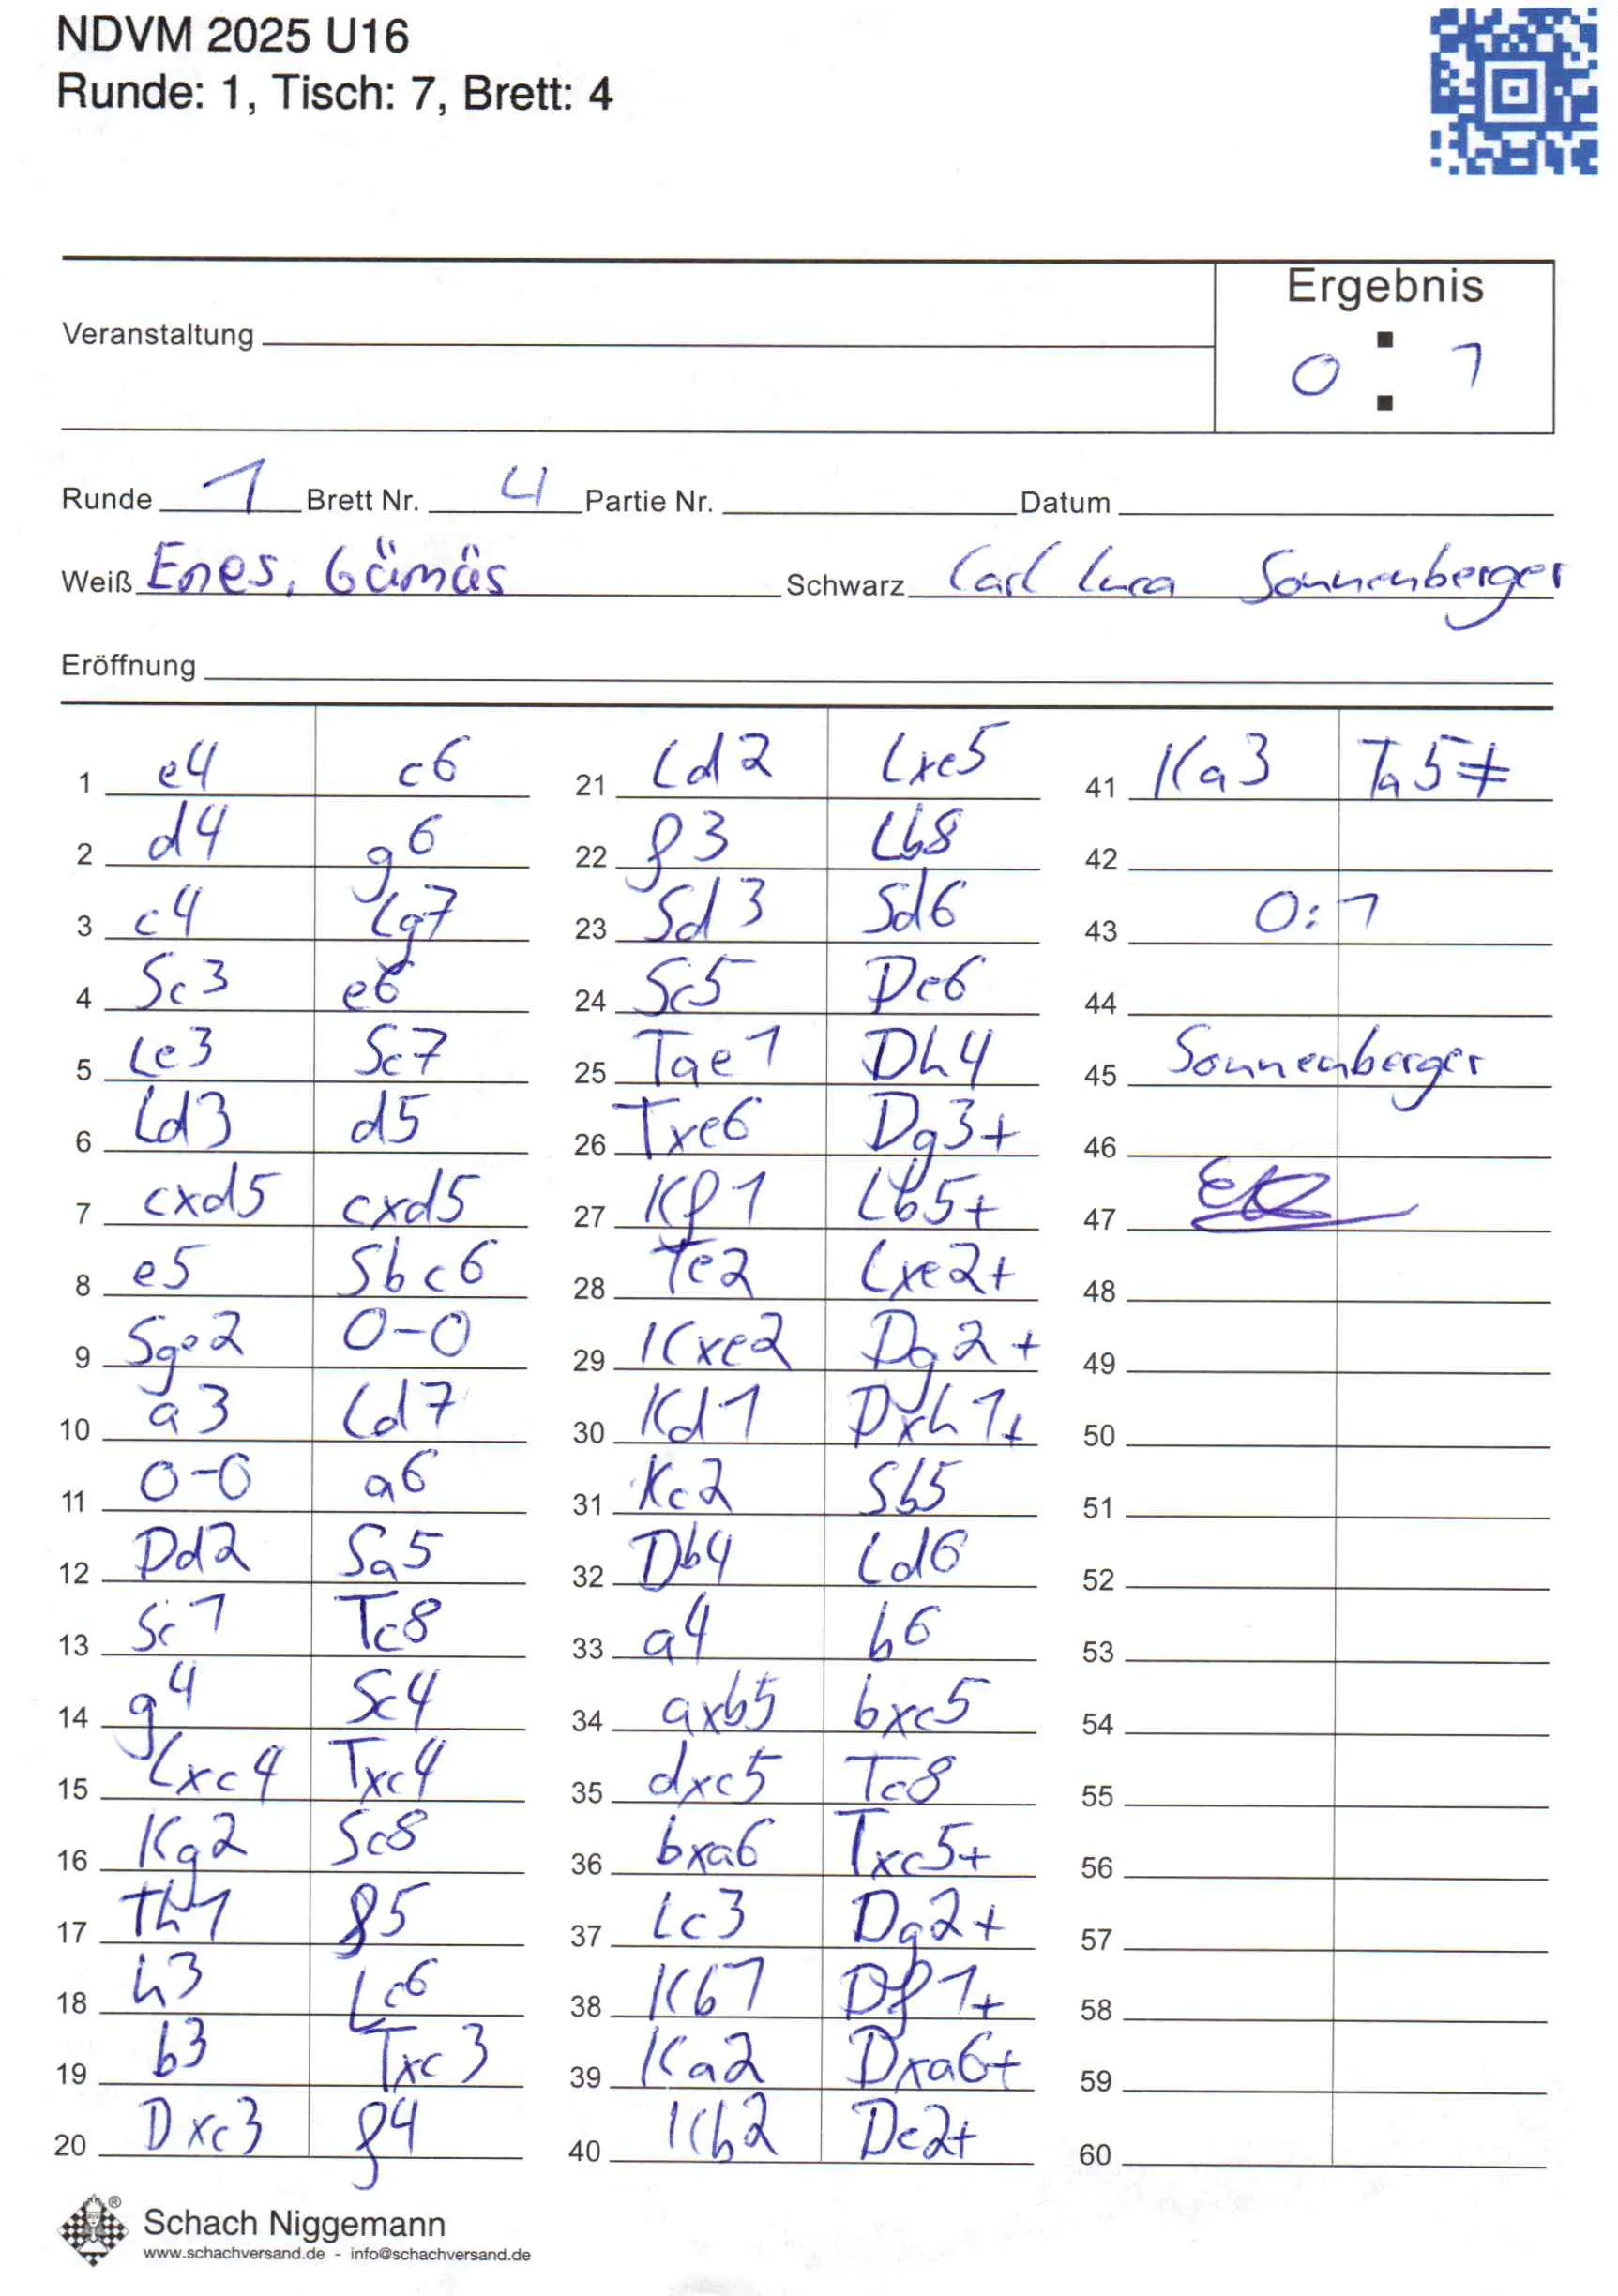 NDVM 2025 U16
Runde: 1, Tisch: 7, Brett: 4
Ergebnis
Veranstaltung
0 : 1
Runde 1 Brett Nr. 4 Partie Nr. Datum
Weiß Enes, Gümüs Schwarz Carl Luca Sonnenberger
Eröffnung
1 e4 c6 21 Ld2 Lxe5 41 Ka3 Ta5≠
2 d4 g6 22 f3 Lb8 42
3 c4 Lg7 23 Sd3 Sd6 43 0:1
4 Sc3 e6 24 Sc5 De6 44
5 Le3 Se7 25 Tae1 Dh4 45 Sonnenberger
6 Ld3 d5 26 Txe6 Dg3+ 46
7 cxd5 cxd5 27 Kf1 Lb5+ 47
8 e5 Sbc6 28 Te2 Lxe2+ 48
9 Sge2 0-0 29 Kxe2 Dg2+ 49
10 a3 Ld7 30 Kd1 Dxh1+ 50
11 0-0 a6 31 Kc2 Sb5 51
12 Dd2 Sa5 32 Db4 Ld6 52
13 Sc1 Tc8 33 a4 b6 53
14 g4 Sc4 34 axb5 bxc5 54
15 Lxc4 Txc4 35 dxc5 Tc8 55
16 Kg2 Sc8 36 bxa6 Txc5+ 56
17 Th1 f5 37 Lc3 Dg2+ 57
18 h3 Lc6 38 Kb1 Df1+ 58
19 b3 Txc3 39 Ka2 Dxa6+ 59
20 Dxc3 f4 40 Kb2 De2+ 60
Schach Niggemann
www.schachversand.de - info@schachversand.de